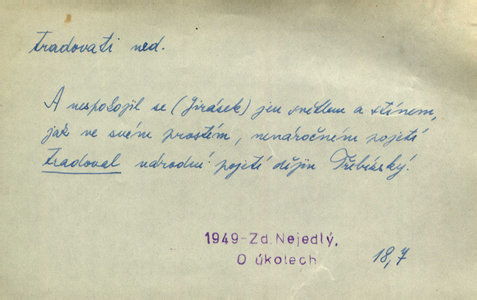 tradovati ned.
A nespokojil se (Jirásek) jen světlem a stínem,
jak ve svém prostém, nenáročném pojetí
tradoval národní pojetí dějin Třebízský.
1949-Zd. Nejedlý,
O úkolech
18,7